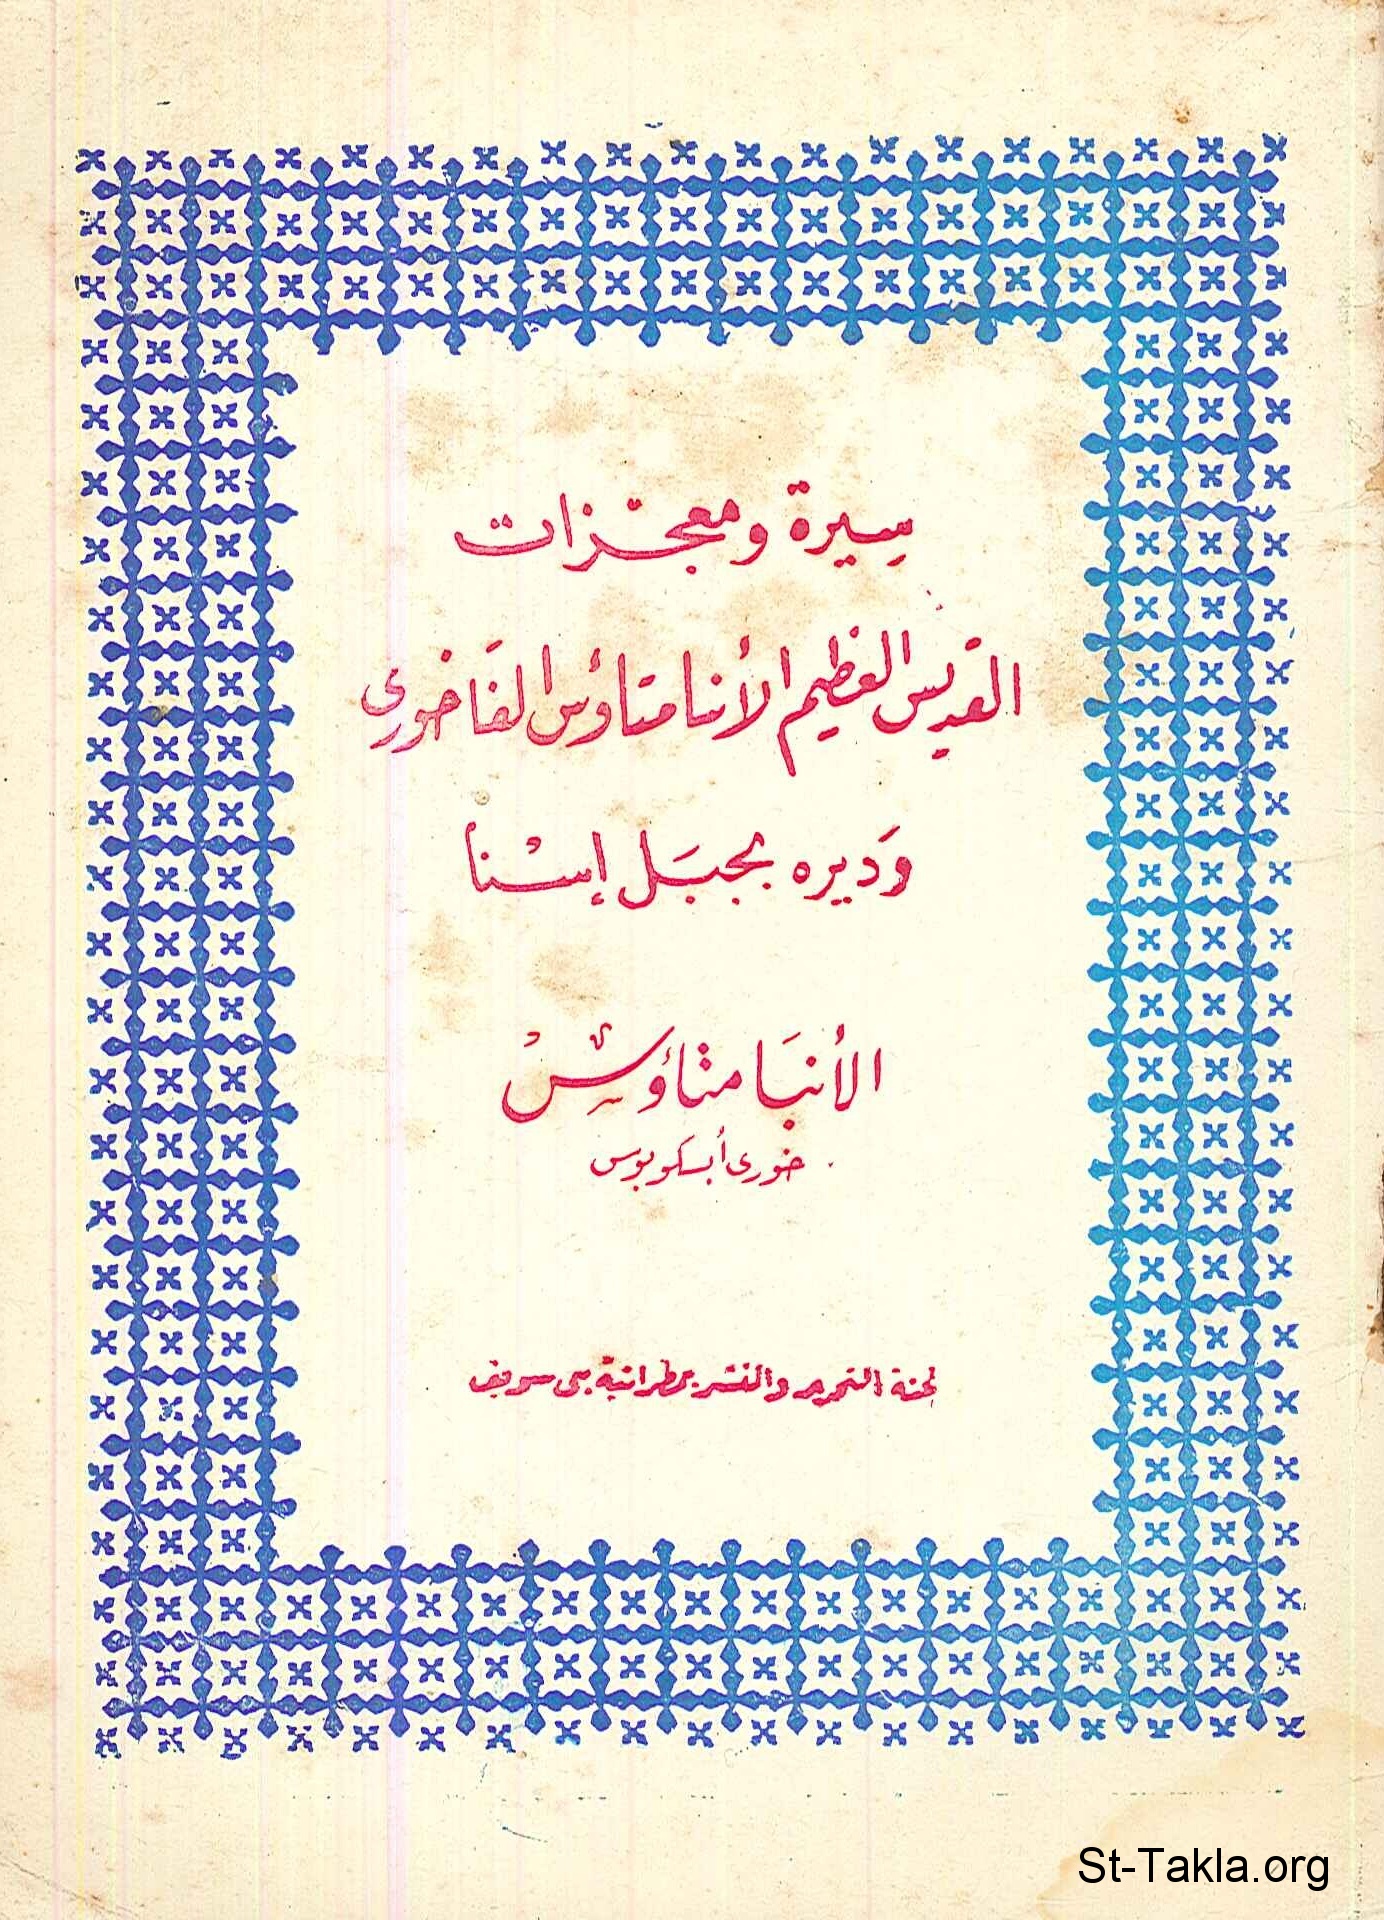 سيرة ومعجزات
القديس العظيم الأنبا متاؤس الفاخورى
وديره بجبل إسنا
الأنبا متاؤس
خورى أبسكوبوس
لجنة التحرير والنشر بمطرانية بنى سويف
St-Takla.org